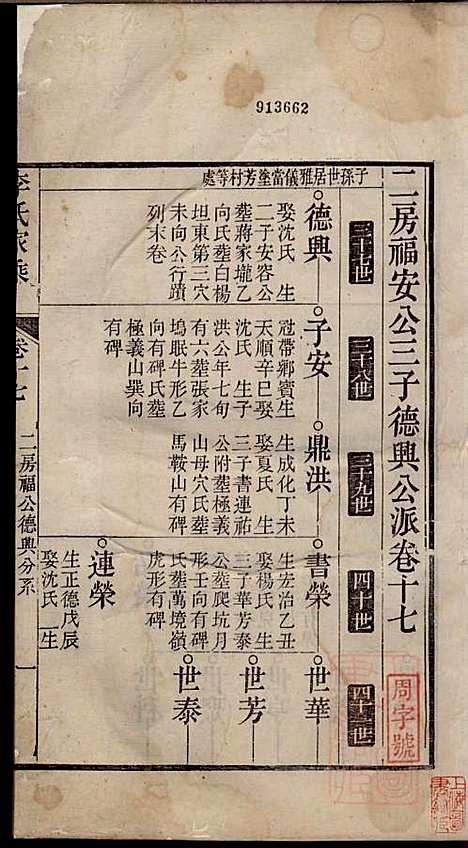 913662
二房福安公三子德興公派卷十七
周字號
子孫世居雅儀當塗芳村等處
三十七世
三十八世
三十九世
四十世
四十一世
德興
娶沈氏 生
二子安容公
塟蔣家壠乙
向氏塟白楊
坦東第三穴
未向公行蹟
列末卷
子安
冠帶鄉賓生
天順辛巳娶
沈氏 生子
洪公年七旬
有六塟張家
塢眠牛形乙
向有碑氏塟
極義山巽向
有碑
鼎洪
生成化丁未
娶夏氏 生
三子書連祐
公附塟極義
山母穴氏塟
馬鞍山有碑
書榮
生宏治乙丑
娶楊氏 生
三子華芳泰
公塟爬坑月
形壬向有碑
氏塟萬境嶺
虎形有碑
世華
世芳
世泰
連榮
生正德戊辰
娶沈氏 一生
李氏家乘
卷十七
二房福公德興分系
一